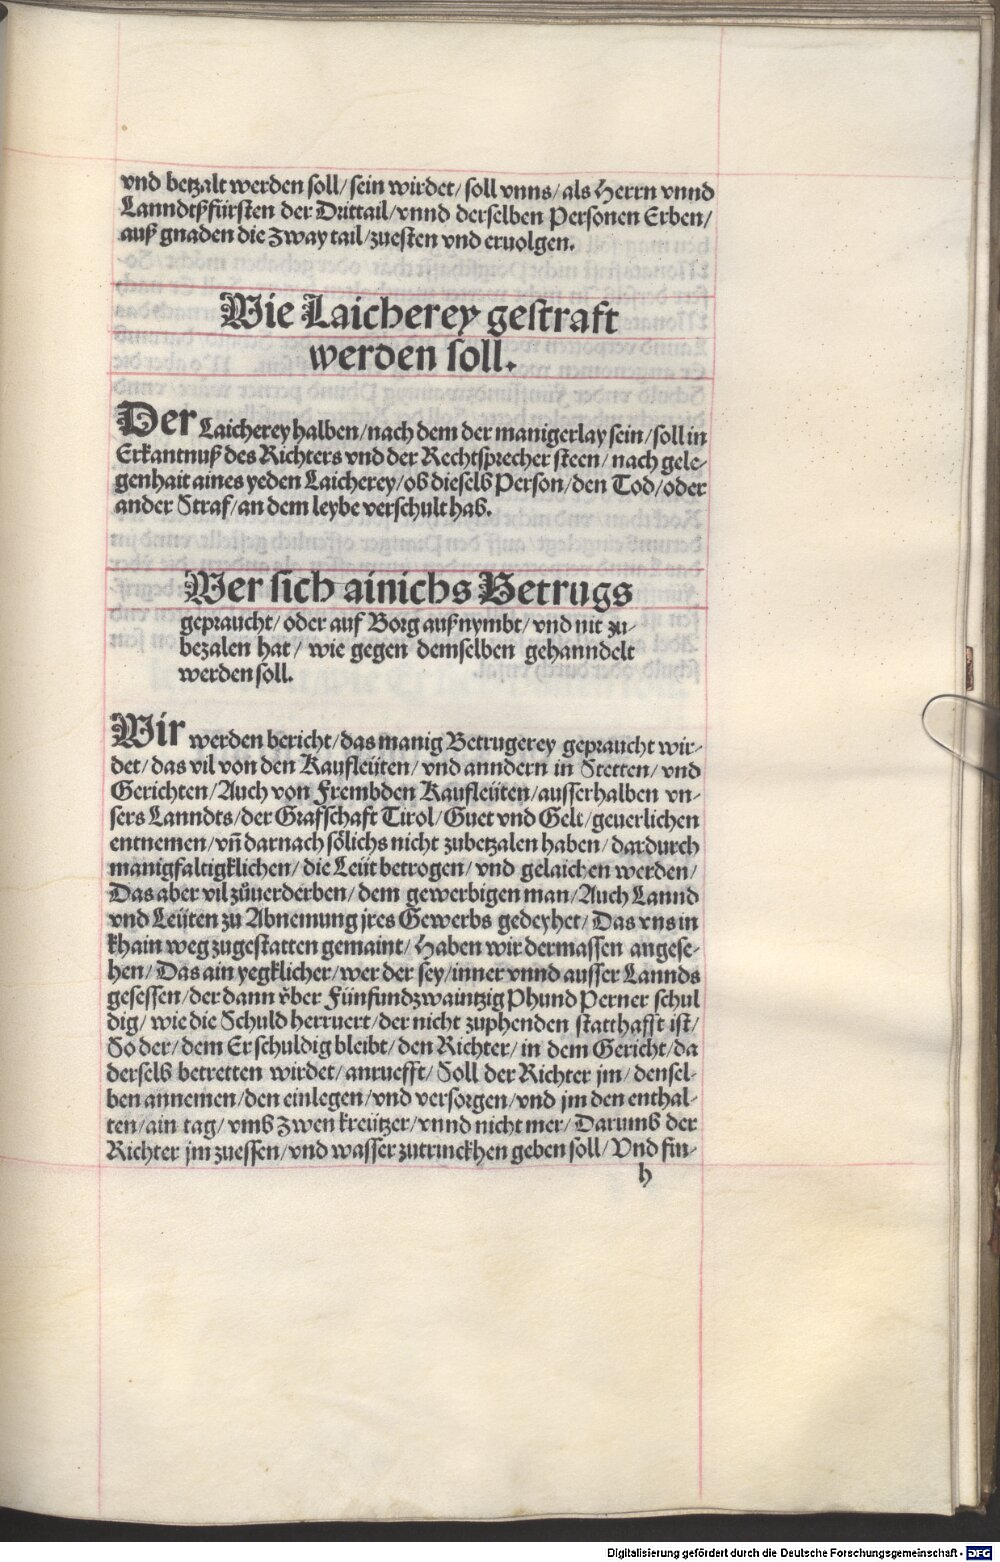 vnd betzalt werden soll/ sein wirdet/ soll vnns/ als Herrn vnnd
Lanndtßfürsten der Drittail/ vnnd derselben Personen Erben/
auß gnaden die Zway tail/ zuesten vnd eruolgen.
Wie Laicherey gestraft
werden soll.
Der Laicherey halben/ nach dem der manigerlay sein/ soll in
Erkantnuß des Richters vnd der Rechtsprecher steen/ nach gele-
genhait aines yeden Laicherey/ ob dieselb Person/ den Tod/ oder
ander Straf/ an dem leybe verschult hab.
Wer sich ainichs Betrugs
gepraucht/ oder auf Borg außnymbt/ vnd nit zu-
bezalen hat/ wie gegen demselben gehanndelt
werden soll.
Wir werden bericht/ das manig Betrugerey gepraucht wir-
det/ das vil von den Kaufleüten/ vnd anndern in Stetten/ vnd
Gerichten/ Auch von Frembden Kaufleüten/ ausserhalben vn-
sers Lanndts/ der Grafschaft Tirol/ Guet vnd Gelt/ geuerlichen
entnemen/ vñ darnach sölichs nicht zubetzalen haben/ dardurch
manigfaltigklichen/ die Leüt betrogen/ vnd gelaichen werden/
Das aber vil zůuerderben/ dem gewerbigen man/ Auch Lannd
vnd Leüten zu Abnemung jres Gewerbs gedeyhet/ Das vns in
khain weg zugestatten gemaint/ Haben wir dermassen angese-
hen/ Das ain yegklicher/ wer der sey/ inner vnnd ausser Lannds
gesessen/ der dann v̈ber Fünfundzwaintzig Phund Perner schul
dig/ wie die Schuld herruert/ der nicht zuphenden statthafft ist/
So der/ dem Er schuldig bleibt/ den Richter/ in dem Gericht/ da
derselb betretten wirdet/ anruefft/ Soll der Richter jm/ densel-
ben annemen/ den einlegen/ vnd versorgen/ vnd jm den enthal-
ten/ ain tag/ vmb Zwen kreützer/ vnnd nicht mer/ Darumb der
Richter jm zuessen/ vnd wasser zutrinckhen geben soll/ Vnd fin-
h
Digitalisierung gefördert durch die Deutsche Forschungsgemeinschaft - DFG